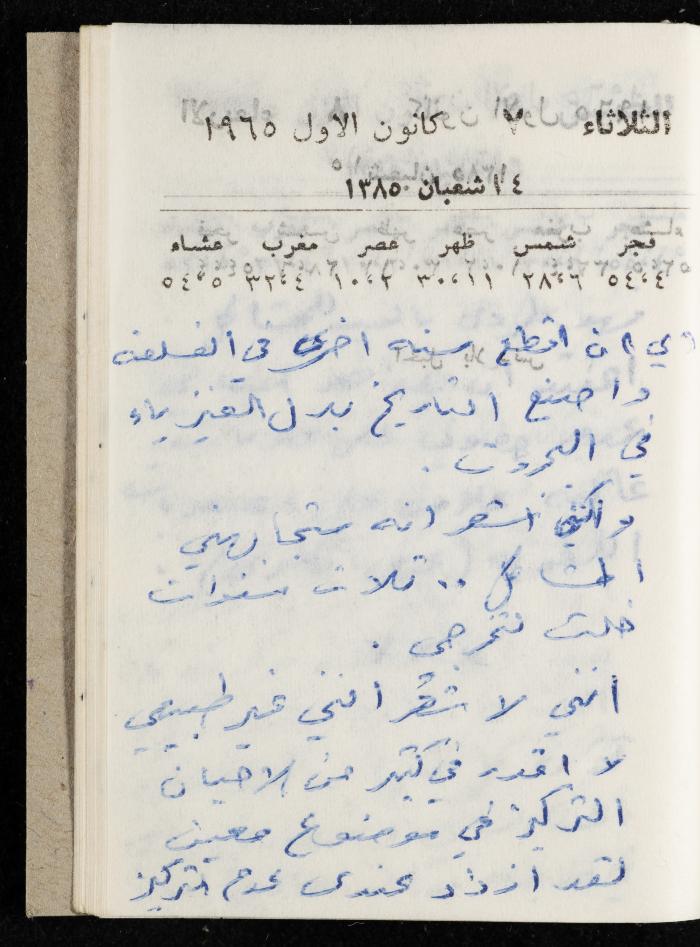 الثلاثاء ٧ كانون الاول ١٩٦٥
١٤ شعبان ١٣٨٥
فجر شمس ظهر عصر مغرب عشاء
٤،٥٤ ٦،٢٨ ١١،٣٠ ٢،١٠ ٤،٣٢ ٥،٥٤
اي ان اقطع سنه اخرى في الفلسفه
واضيع التاريخ بدل الفيزياء
في
ولكني اشعر انه ستجابهني
المشاكل .. ثلاث سنوات
خلت تخرجي .
انني لا شعر انني غير طبيعي
لا اقدر في كثير من الاحيان
التركيز في موضوع معين
لقد ازداد عندي عدم التركيز